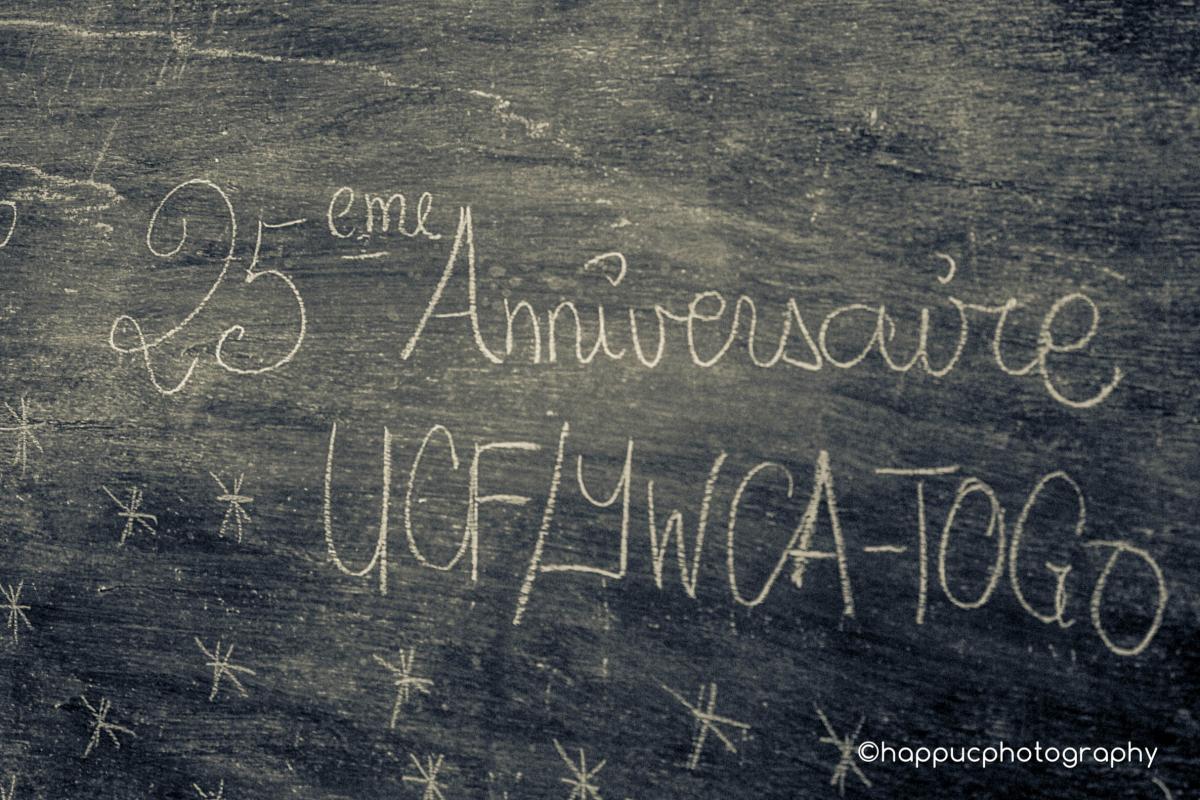 25eme Anniversaire
UCF/YWCA-TOGO
©happucphotography